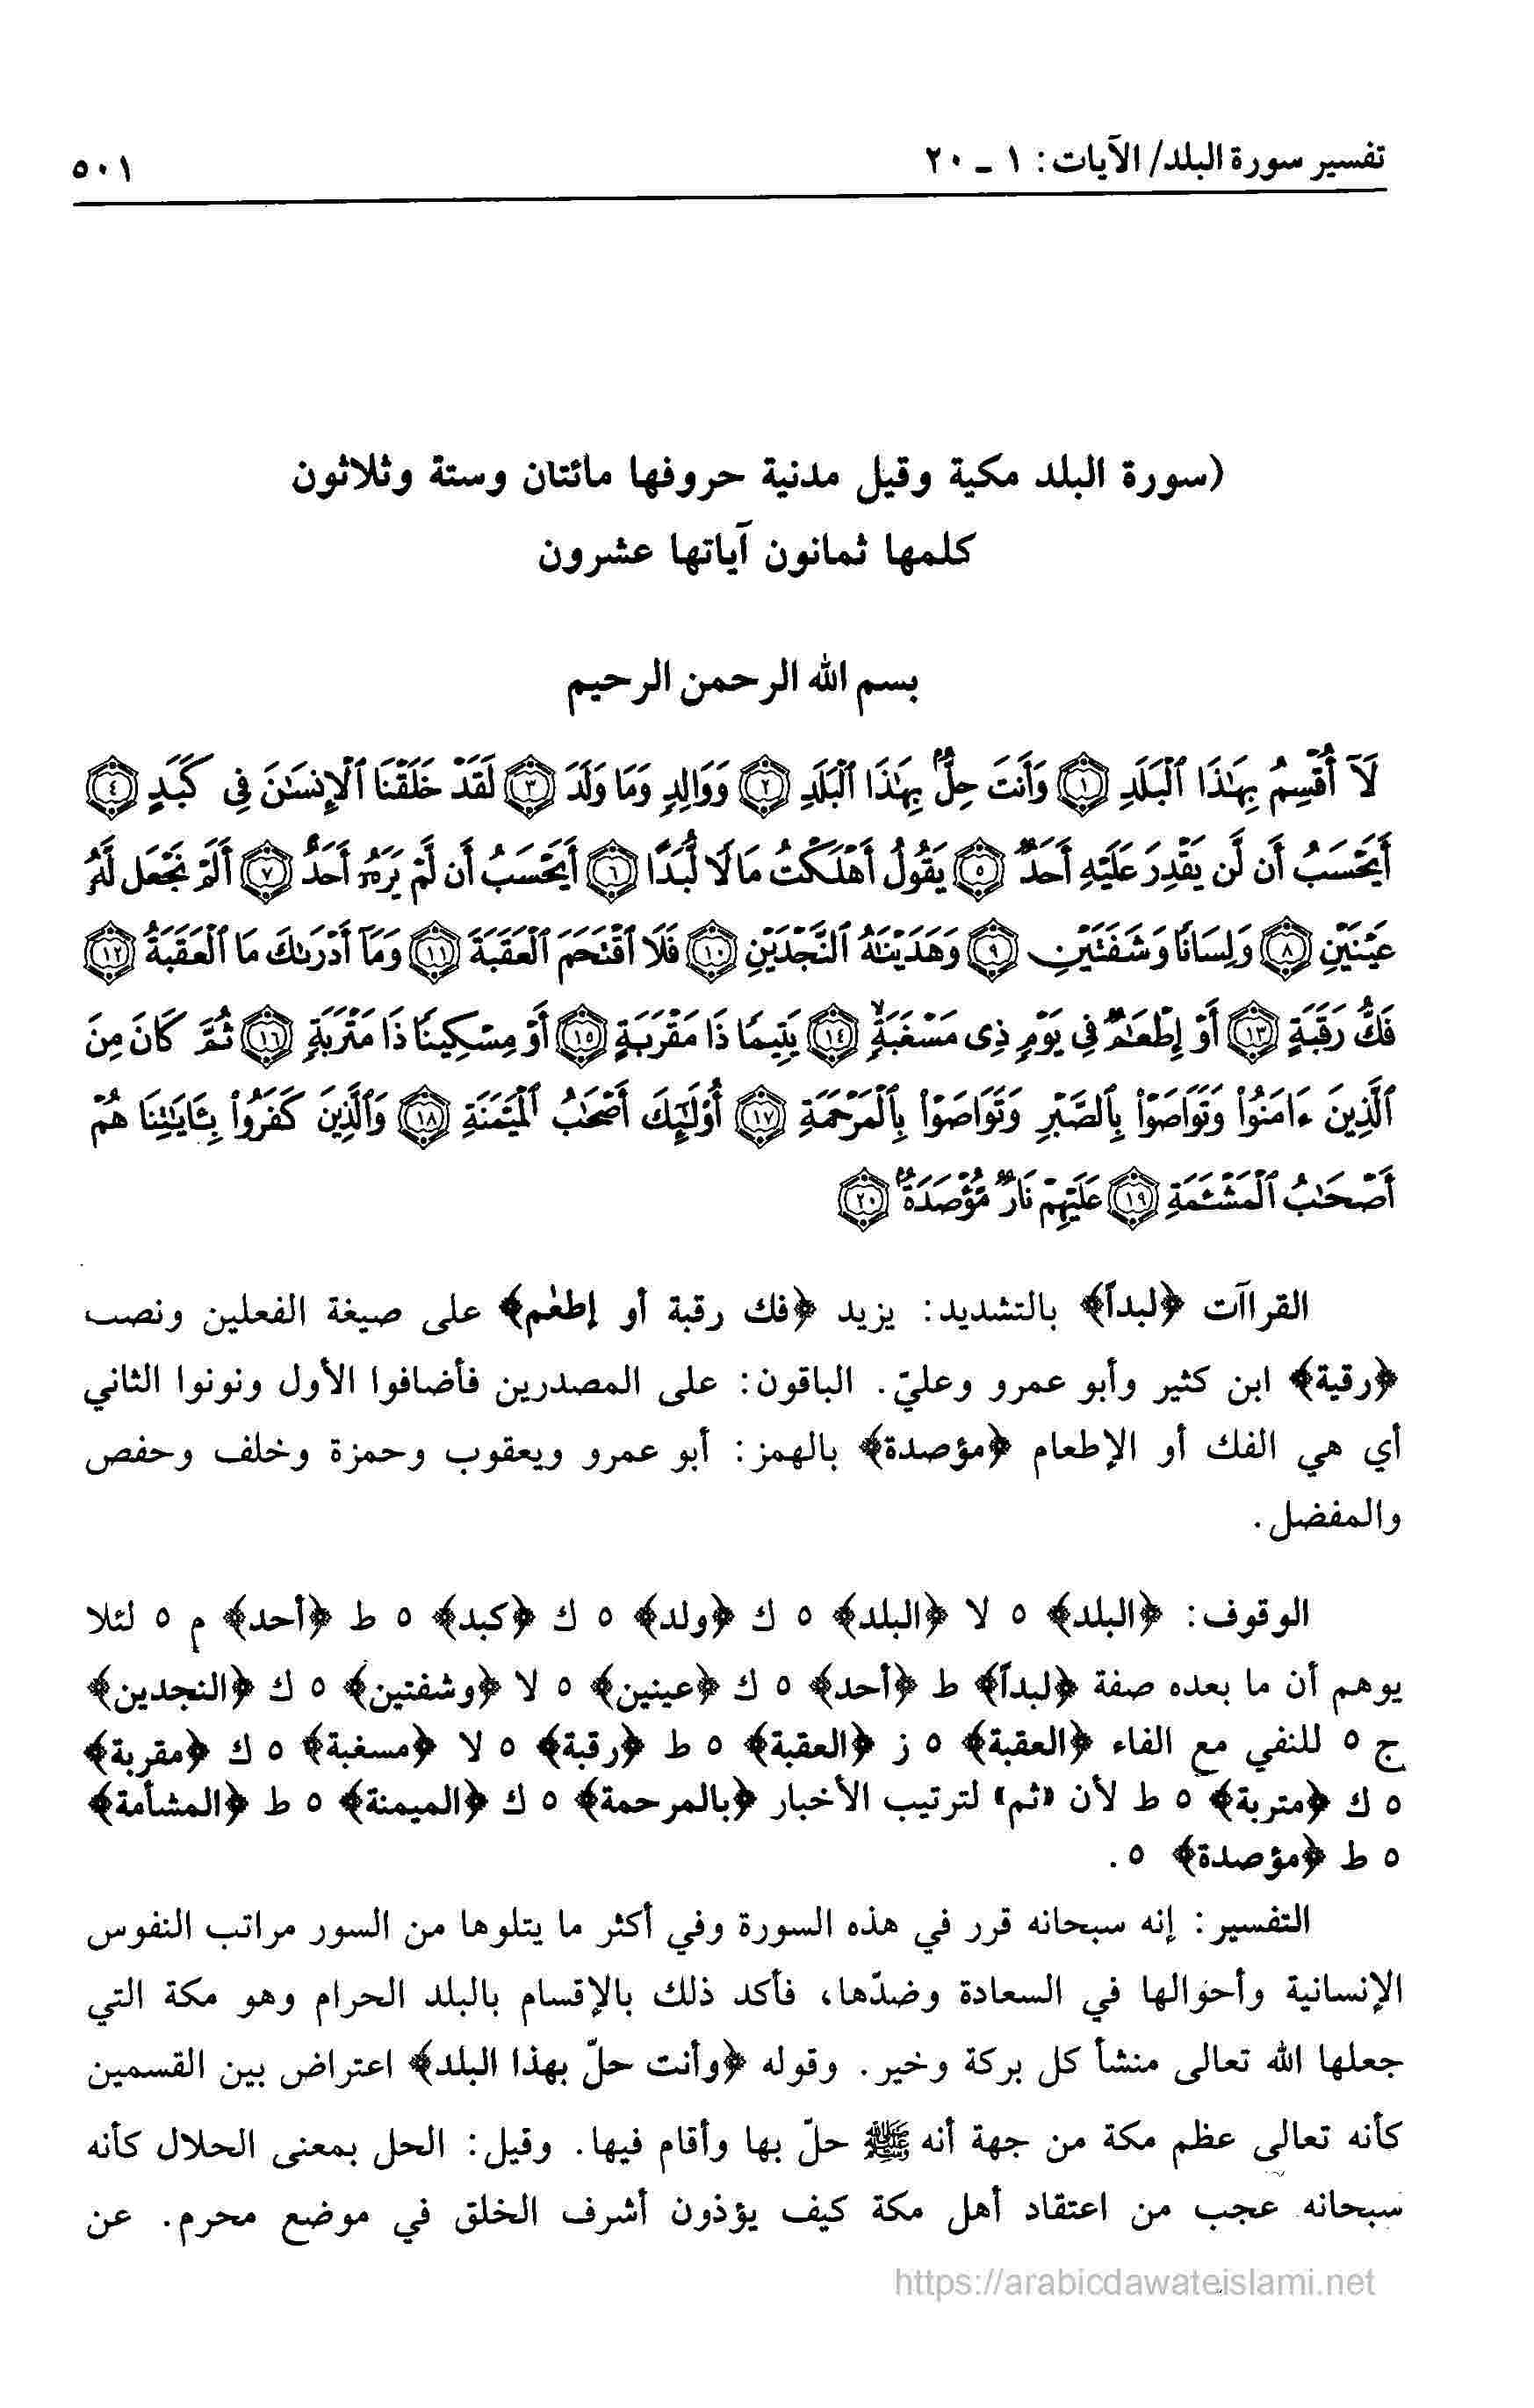 تفسير سورة البلد/ الآيات: ١ ـ ٢٠
٥٠١
(سورة البلد مكية وقيل مدنية حروفها مائتان وستة وثلاثون
كلمها ثمانون آياتها عشرون
بسم الله الرحمن الرحيم
لَآ أُقْسِمُ بِهَٰذَا ٱلْبَلَدِ ١ وَأَنتَ حِلٌّۢ بِهَٰذَا ٱلْبَلَدِ ٢ وَوَالِدٍ وَمَا وَلَدَ ٣ لَقَدْ خَلَقْنَا ٱلْإِنسَٰنَ فِى كَبَدٍ ٤
أَيَحْسَبُ أَن لَّن يَقْدِرَ عَلَيْهِ أَحَدٌ ٥ يَقُولُ أَهْلَكْتُ مَالًا لُّبَدًا ٦ أَيَحْسَبُ أَن لَّمْ يَرَهُۥٓ أَحَدٌ ٧ أَلَمْ نَجْعَل لَّهُۥ
عَيْنَيْنِ ٨ وَلِسَانًا وَشَفَتَيْنِ ٩ وَهَدَيْنَٰهُ ٱلنَّجْدَيْنِ ١٠ فَلَا ٱقْتَحَمَ ٱلْعَقَبَةَ ١١ وَمَآ أَدْرَىٰكَ مَا ٱلْعَقَبَةُ ١٢
فَكُّ رَقَبَةٍ ١٣ أَوْ إِطْعَٰمٌ فِى يَوْمٍ ذِى مَسْغَبَةٍ ١٤ يَتِيمًا ذَا مَقْرَبَةٍ ١٥ أَوْ مِسْكِينًا ذَا مَتْرَبَةٍ ١٦ ثُمَّ كَانَ مِنَ
ٱلَّذِينَ ءَامَنُوا۟ وَتَوَاصَوْا۟ بِٱلصَّبْرِ وَتَوَاصَوْا۟ بِٱلْمَرْحَمَةِ ١٧ أُو۟لَٰٓئِكَ أَصْحَٰبُ ٱلْمَيْمَنَةِ ١٨ وَٱلَّذِينَ كَفَرُوا۟ بِـَٔايَٰتِنَا هُمْ
أَصْحَٰبُ ٱلْمَشْـَٔمَةِ ١٩ عَلَيْهِمْ نَارٌ مُّؤْصَدَةٌۢ ٢٠
القراآت ﴿لبداً﴾ بالتشديد: يزيد ﴿فك رقبة أو إطعٰم﴾ على صيغة الفعلين ونصب
﴿رقبة﴾ ابن كثير وأبو عمرو وعليّ. الباقون: على المصدرين فأضافوا الأول ونونوا الثاني
أي هي الفك أو الإطعام ﴿مؤصدة﴾ بالهمز: أبو عمرو ويعقوب وحمزة وخلف وحفص
والمفضل.
الوقوف: ﴿البلد﴾ ٥ لا ﴿البلد﴾ ٥ ك ﴿ولد﴾ ٥ ك ﴿كبد﴾ ٥ ط ﴿أحد﴾ م ٥ لئلا
يوهم أن ما بعده صفة ﴿لبداً﴾ ط ﴿أحد﴾ ٥ ك ﴿عينين﴾ ٥ لا ﴿وشفتين﴾ ٥ ك ﴿النجدين﴾
ج ٥ للنفي مع الفاء ﴿العقبة﴾ ٥ ز ﴿العقبة﴾ ٥ ط ﴿رقبة﴾ ٥ لا ﴿مسغبة﴾ ٥ ك ﴿مقربة﴾
٥ ك ﴿متربة﴾ ٥ ط لأن «ثم» لترتيب الأخبار ﴿بالمرحمة﴾ ٥ ك ﴿الميمنة﴾ ٥ ط ﴿المشأمة﴾
٥ ط ﴿مؤصدة﴾ ٥.
التفسير: إنه سبحانه قرر في هذه السورة وفي أكثر ما يتلوها من السور مراتب النفوس
الإنسانية وأحوالها في السعادة وضدّها، فأكد ذلك بالإقسام بالبلد الحرام وهو مكة التي
جعلها الله تعالى منشأ كل بركة وخير. وقوله ﴿وأنت حلّ بهذا البلد﴾ اعتراض بين القسمين
كأنه تعالى عظم مكة من جهة أنه ﷺ حلّ بها وأقام فيها. وقيل: الحل بمعنى الحلال كأنه
سبحانه عجب من اعتقاد أهل مكة كيف يؤذون أشرف الخلق في موضع محرم. عن
https://arabicdawateislami.net